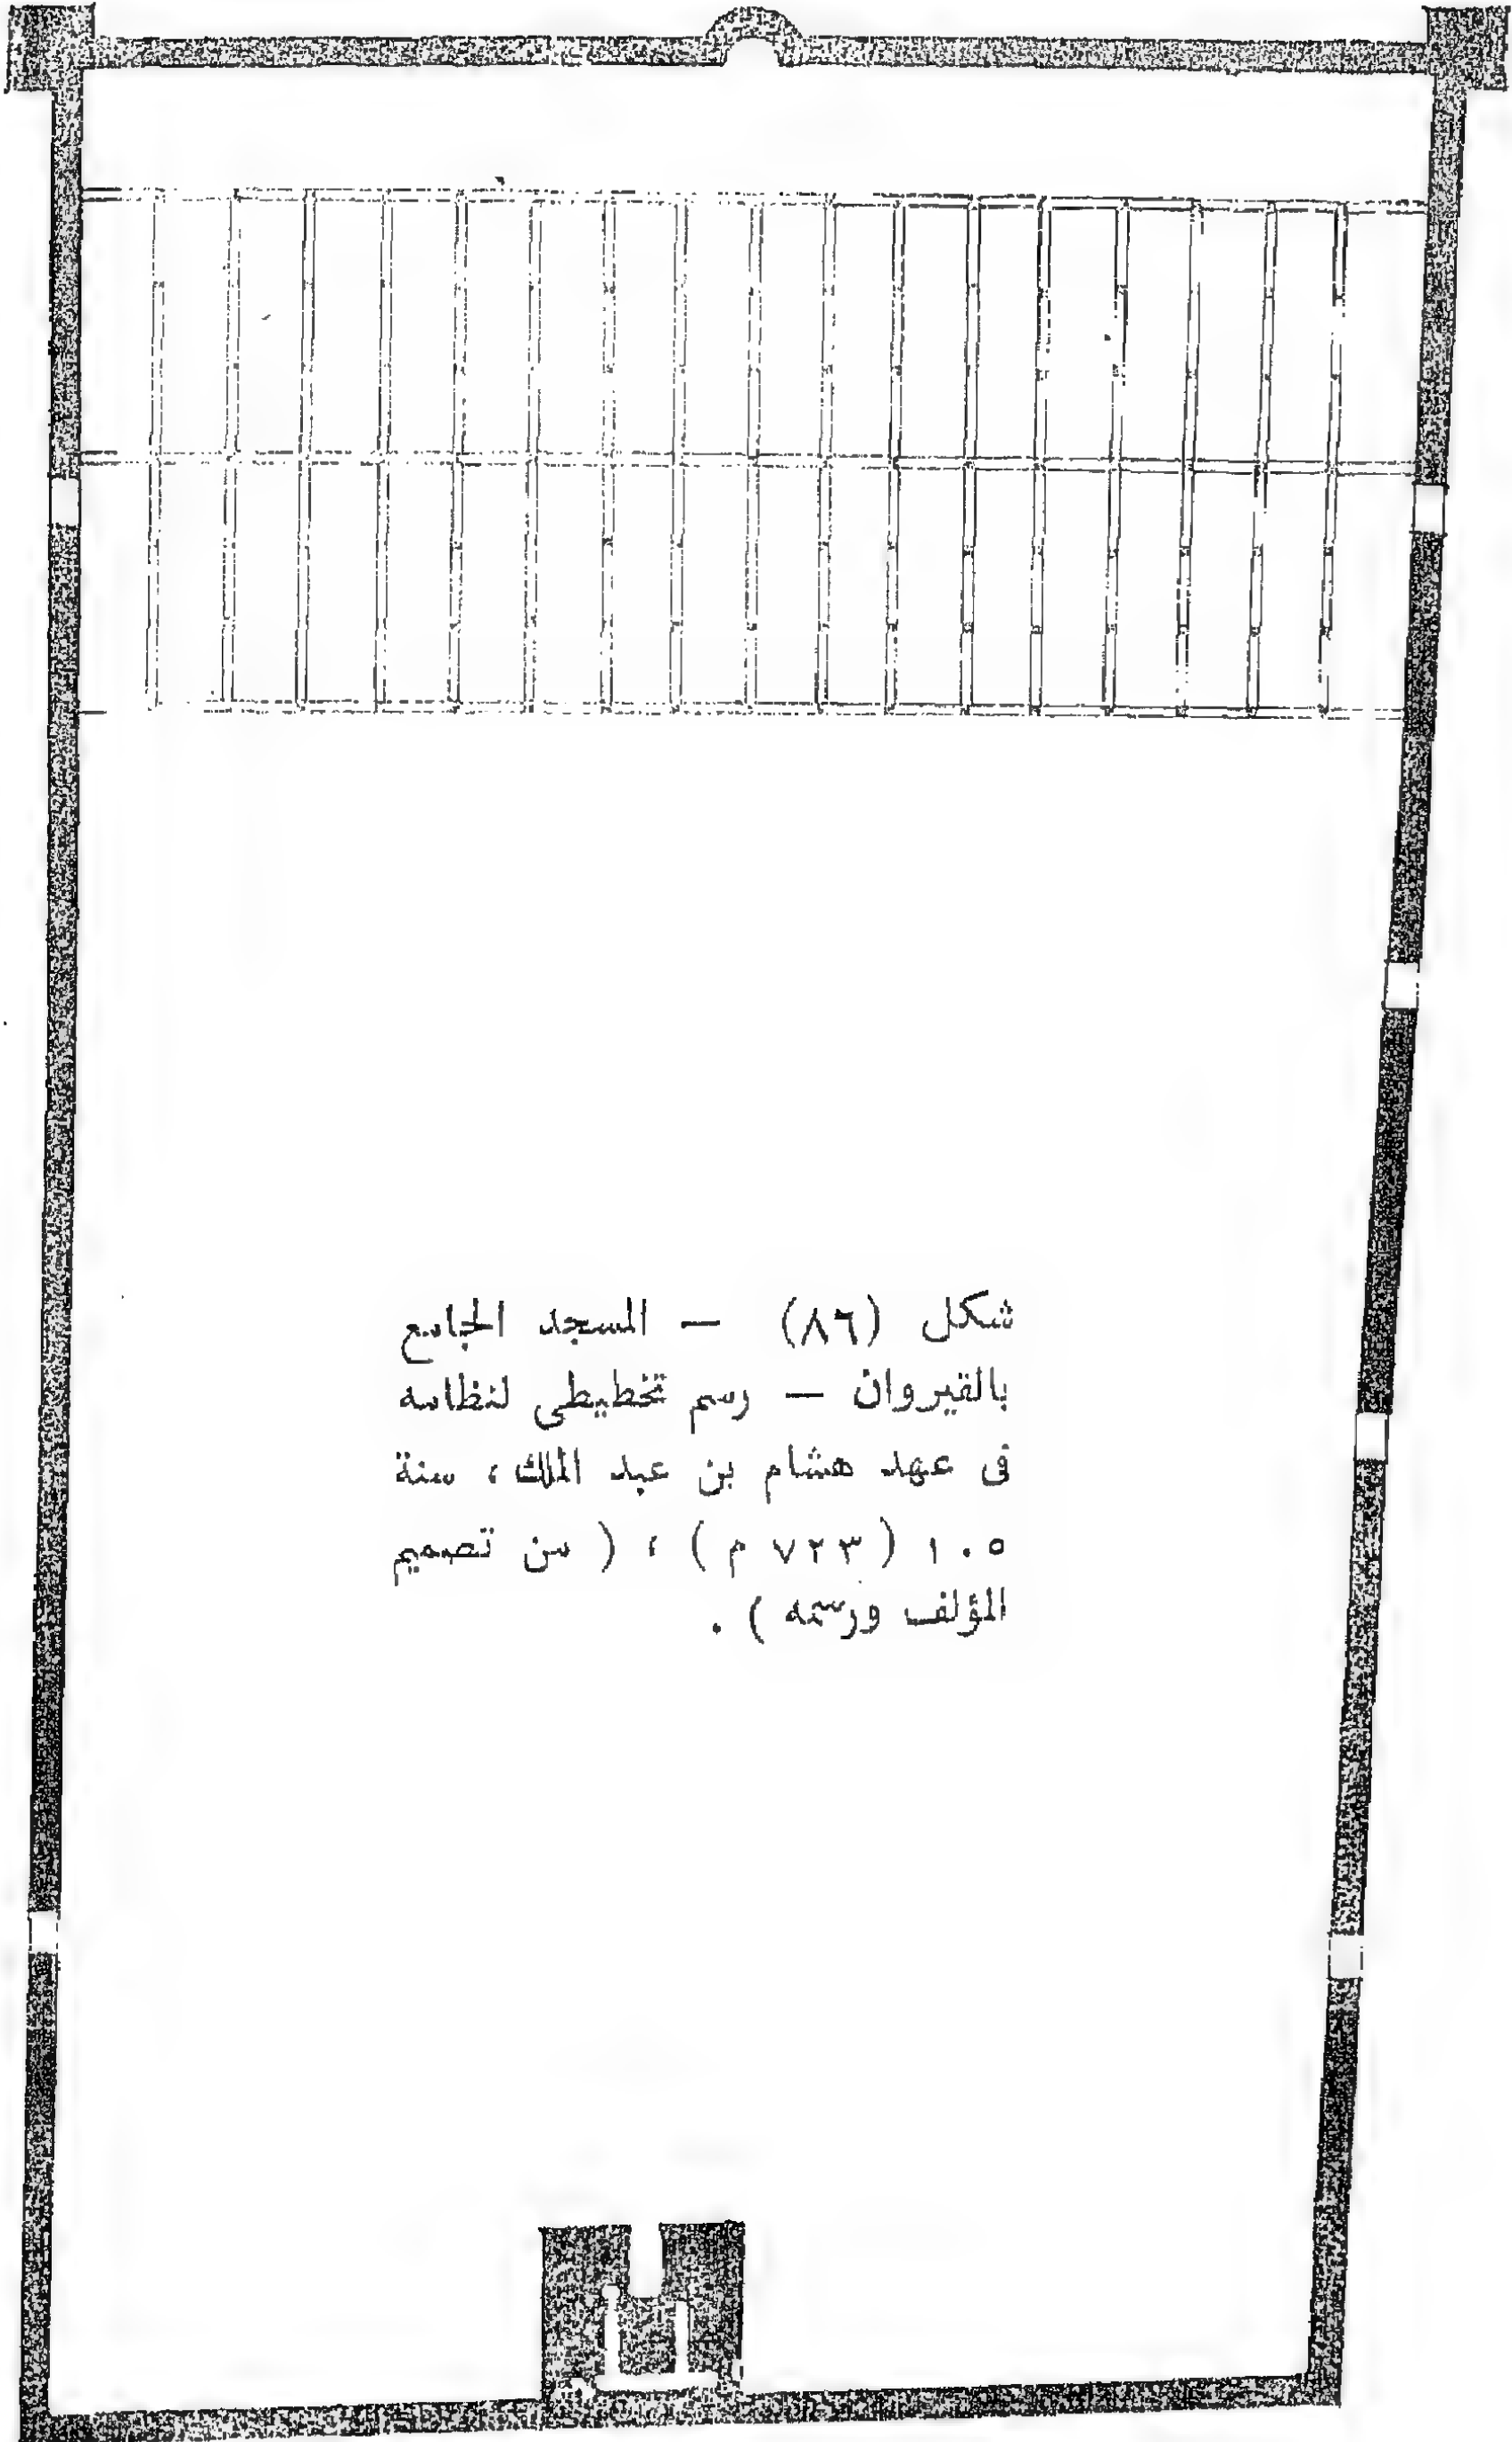 شكل (٨٦) – المسجد الجامع
بالقيروان – رسم تخطيطى لنظامه
فى عهد هشام بن عبد الملك ، سنة
١٠٥ ( ٧٢٣ م ) ، ( من تصميم
المؤلف ورسمه ) .